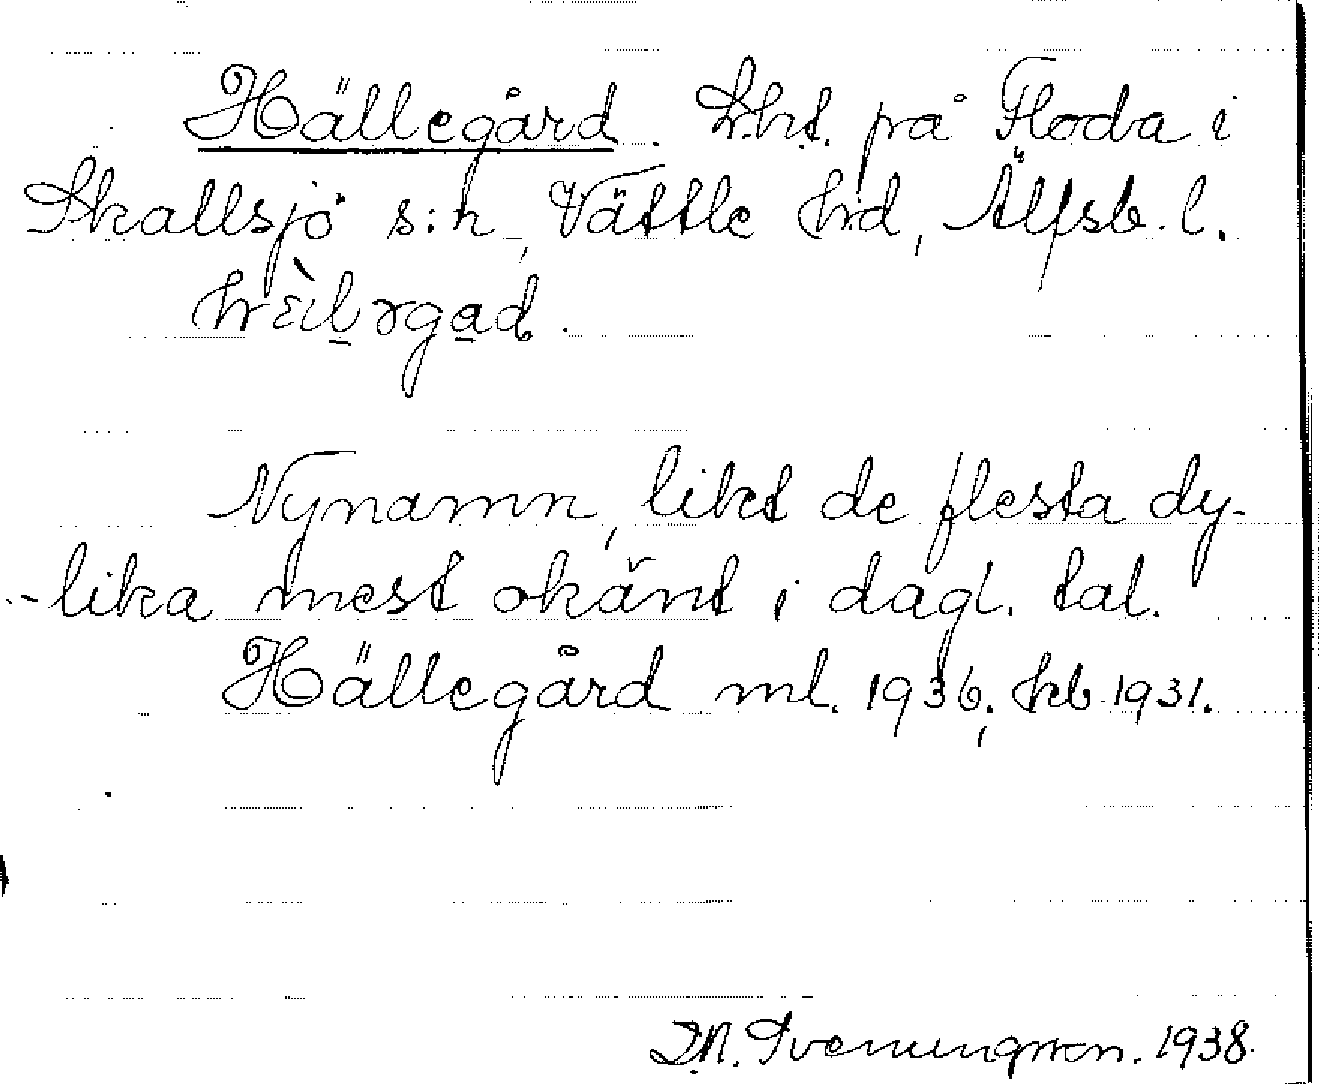 Hällegård. Lht. på Floda i
Skallsjö s:n, Vättle hd, Älfsb. l.
Nynamn, likt de flesta dy-
-lika mest okänt i dagl. tal.
Hällegård ml. 1936, hkb 1931.
Sveningsson. 1938.